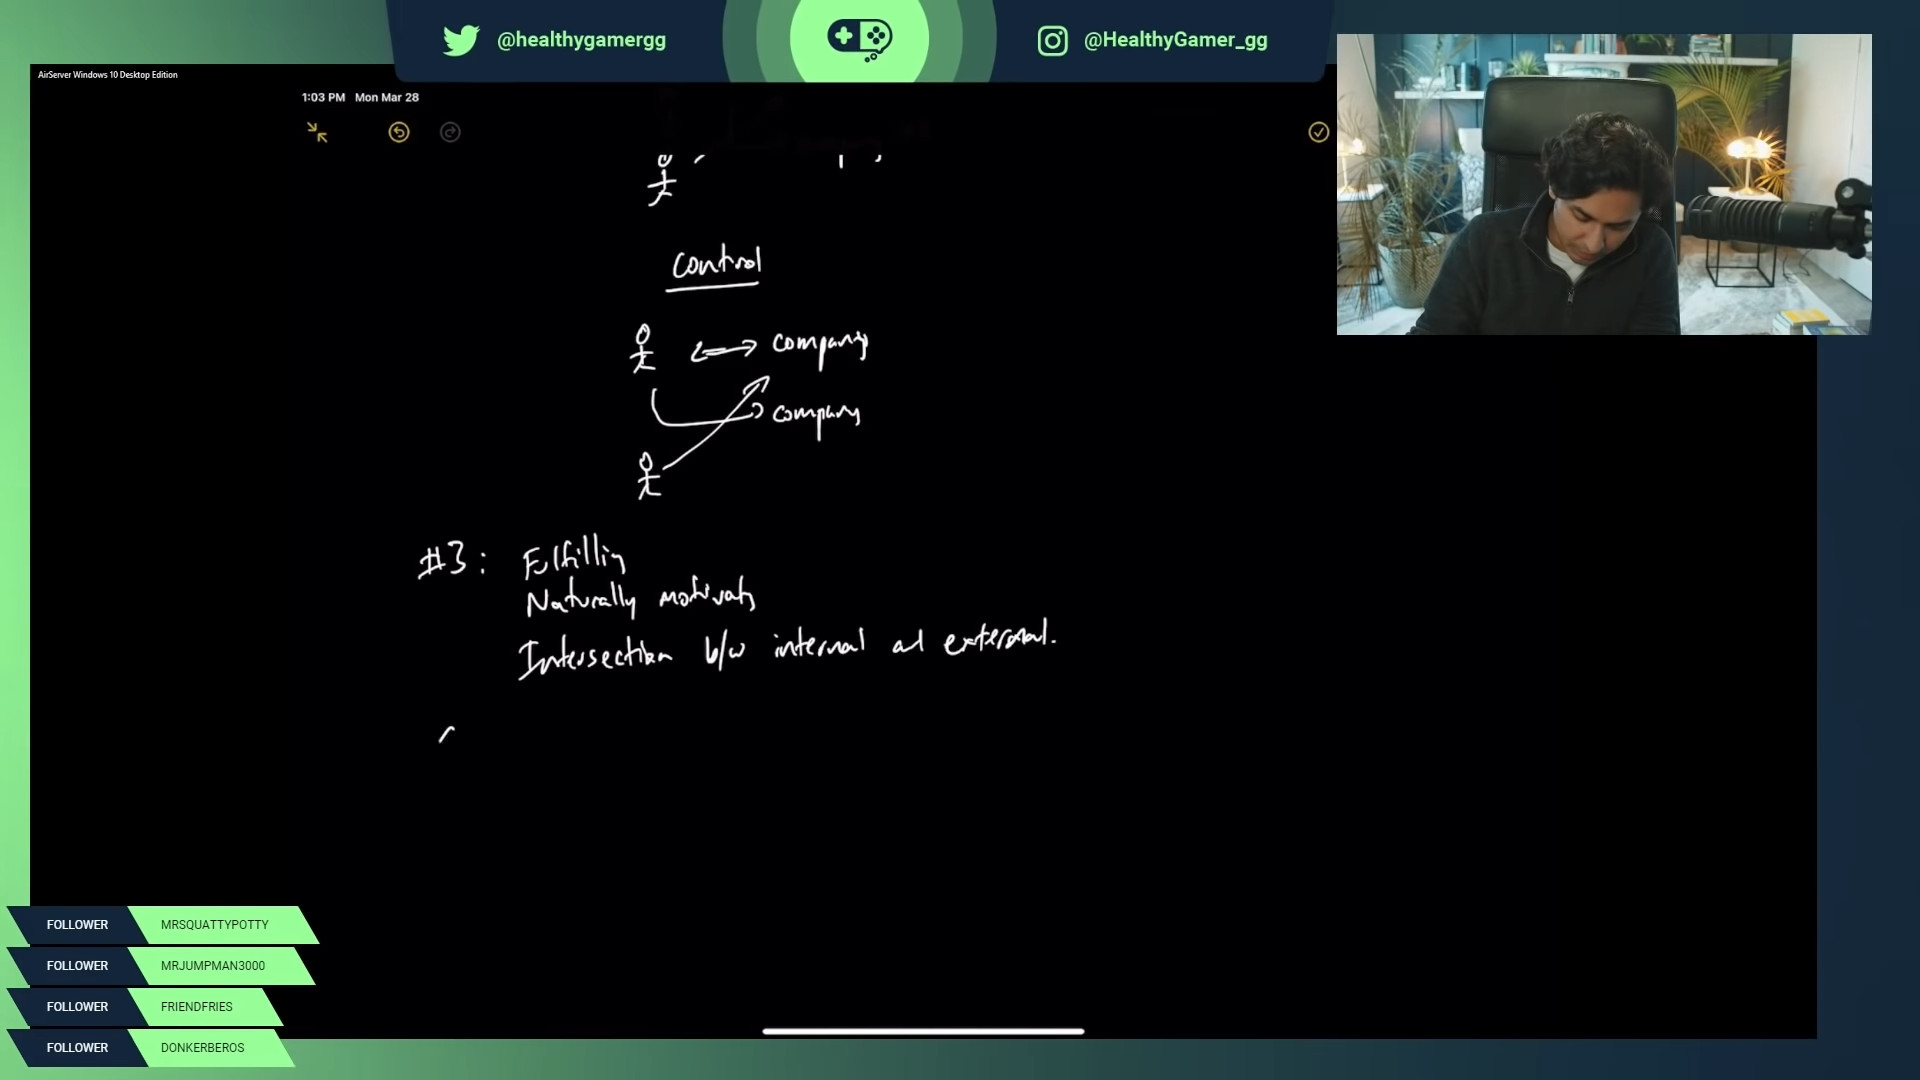 @healthygamergg
@HealthyGamer_gg
AirServer Windows 10 Desktop Edition
1:03 PM Mon Mar 28
control
company
company
#3: Fulfilling
Naturally motivating
Intersection b/w internal ad external.
FOLLOWER MRSQUATTYPOTTY
FOLLOWER MRJUMPMAN3000
FOLLOWER FRIENDFRIES
FOLLOWER DONKERBEROS